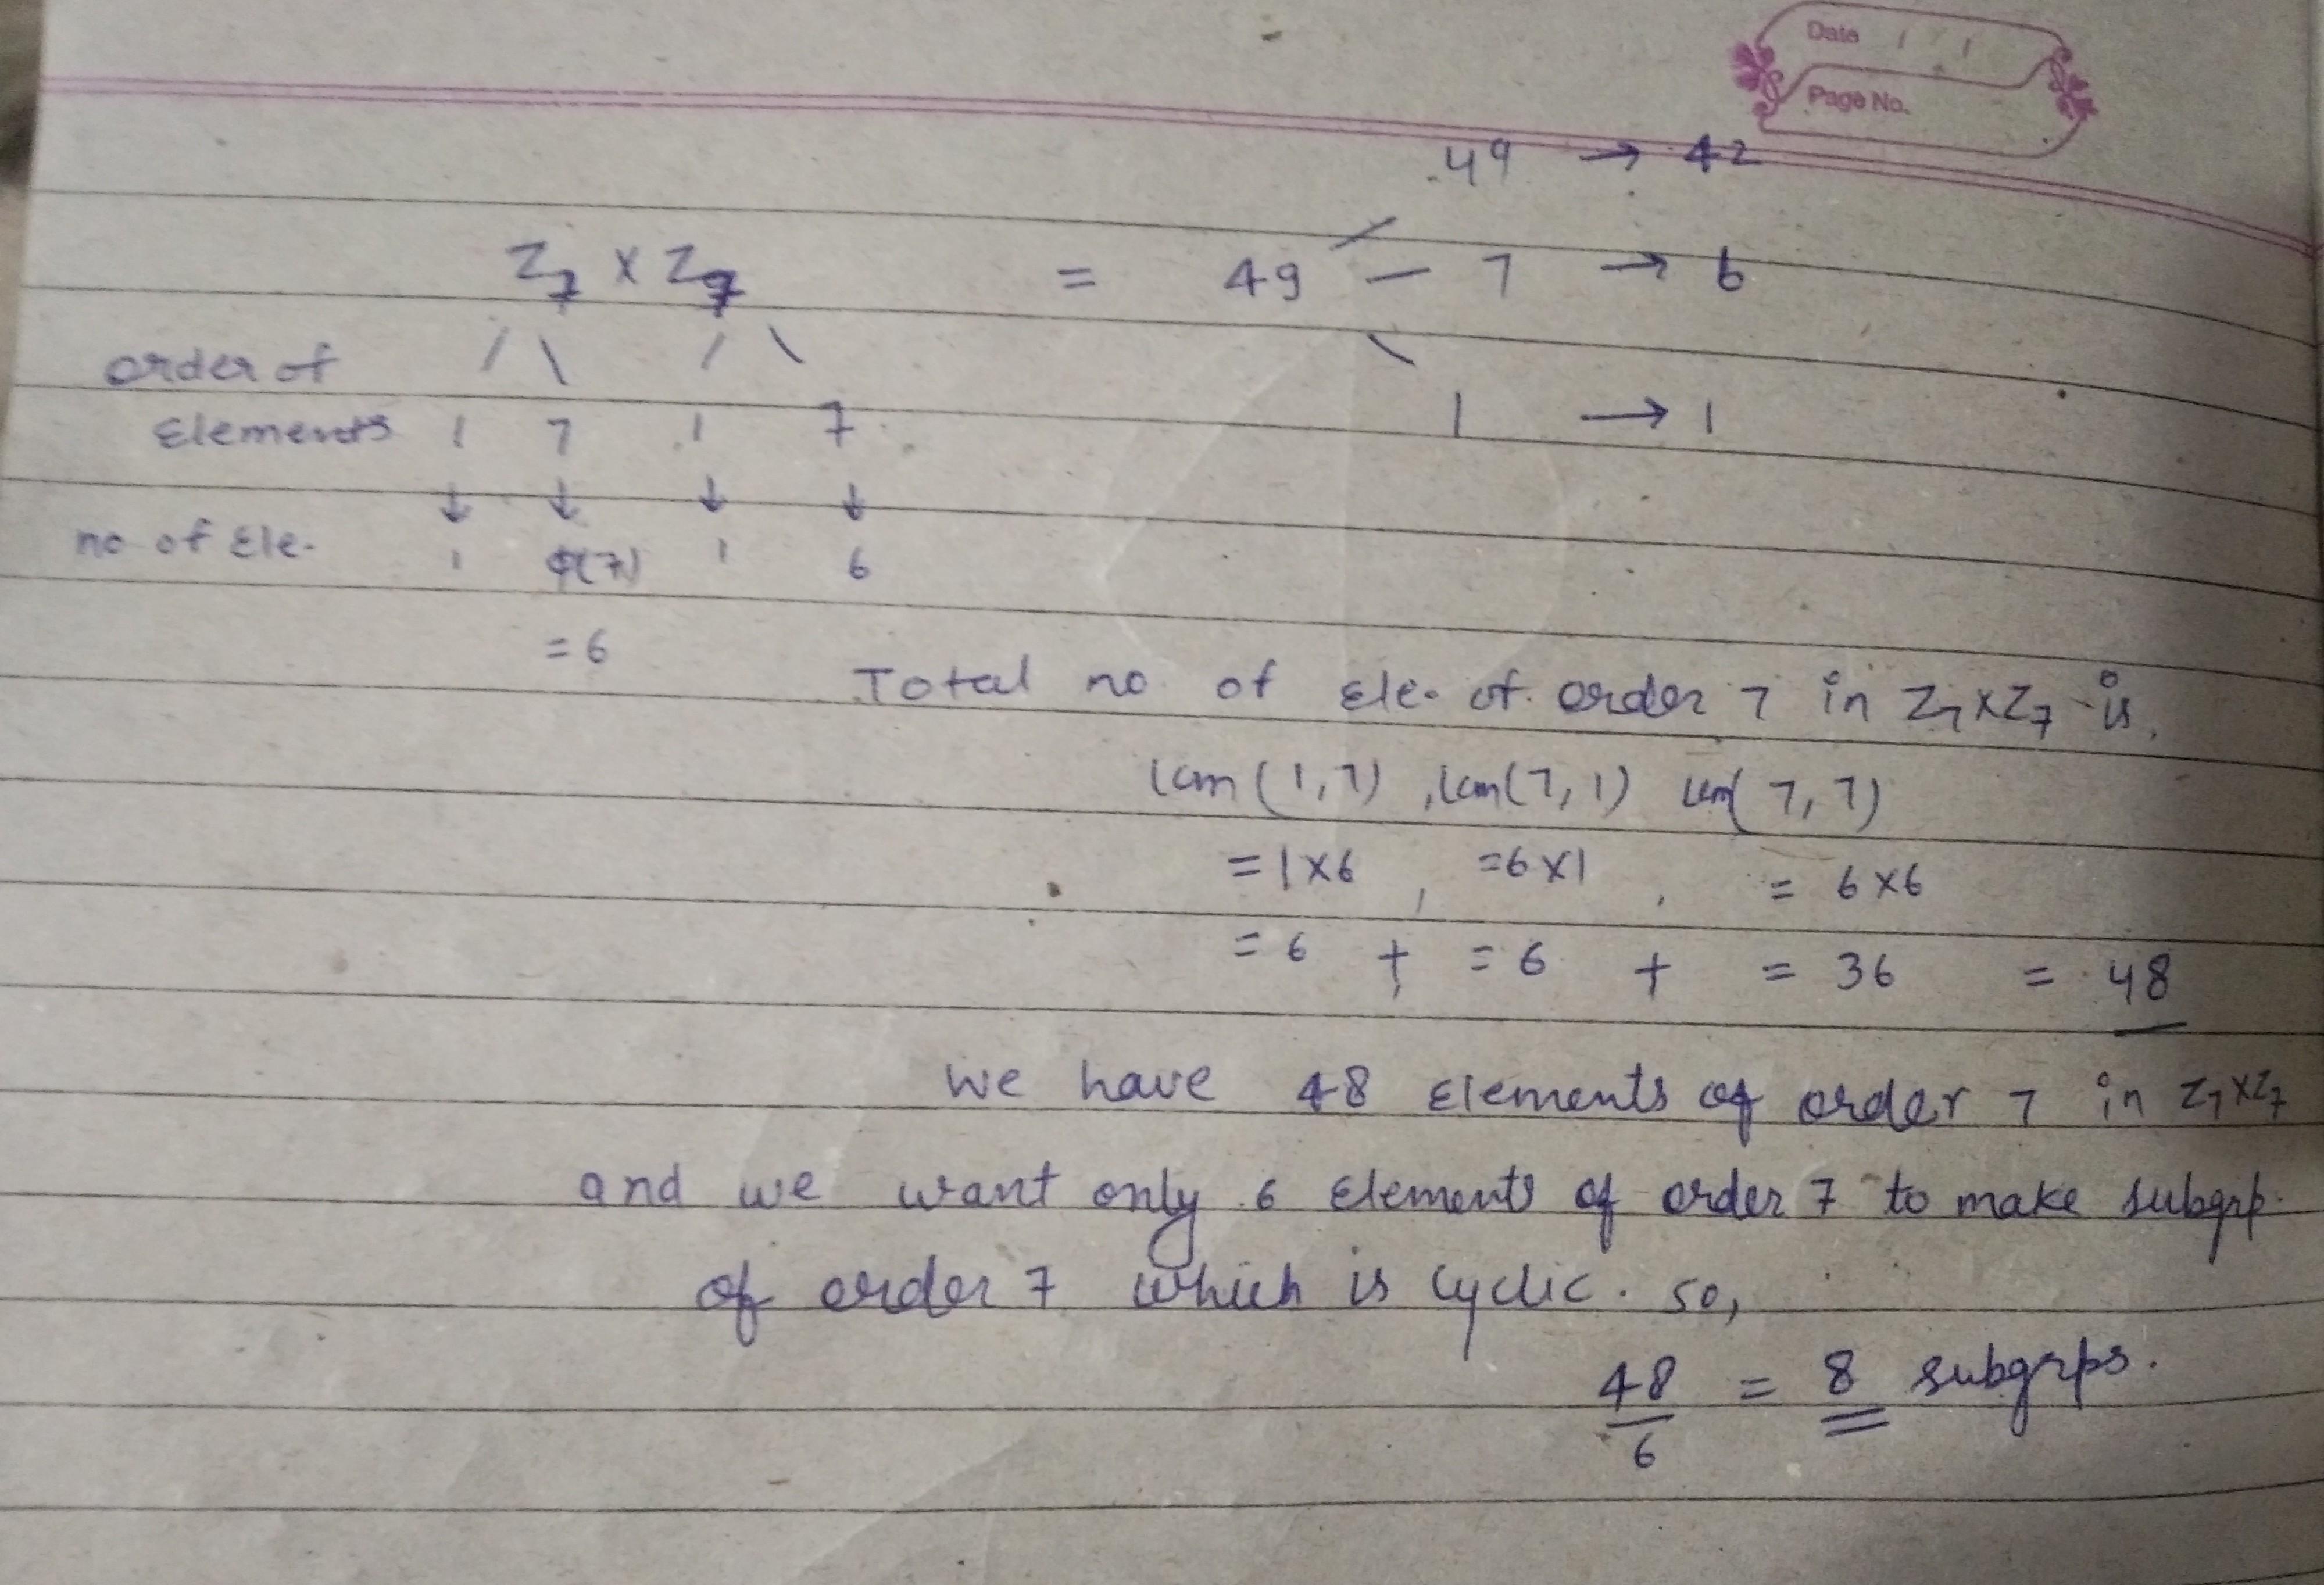 Date / /
Page No.
49 → 42
Z7 x Z7 = 49 — 7 → 6
order of
Elements 1 7 1 7
1 → 1
↓ ↓ ↓ ↓
no of Ele. 1 ϕ(7) 1 6
= 6
Total no. of Ele. of order 7 in Z7xZ7 is,
lcm (1,7) , lcm(7,1) lcm( 7,7)
= 1x6 , =6x1 , = 6x6
= 6 + = 6 + = 36 = 48
We have 48 Elements of order 7 in Z7xZ7
and we want only 6 Elements of order 7 to make subgrp.
of order 7 which is cyclic. so,
48/6 = 8 subgrps.